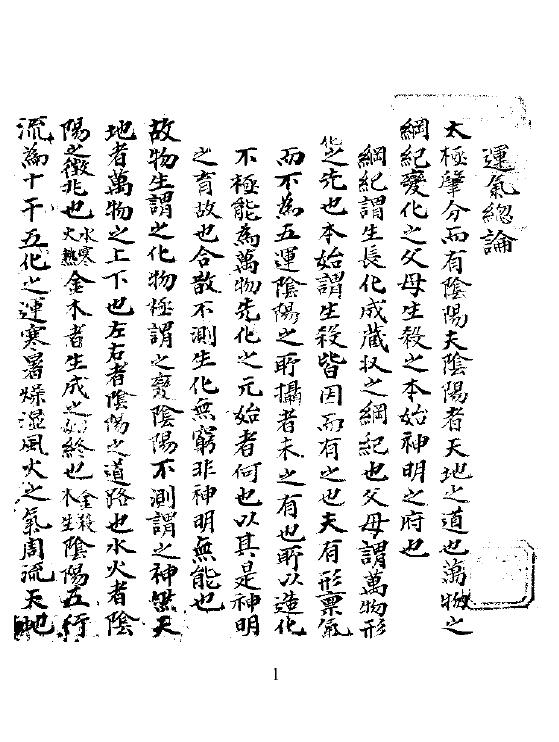 運氣總論
太極肇分而有陰陽夫陰陽者天地之道也萬物之
綱紀變化之父母生殺之本始神明之府也
綱紀謂生長化成藏収之綱紀也父母謂萬物形
化之先也本始謂生殺皆因而有之也夫有形禀氣
而不為五運陰陽之所攝者未之有也所以造化
不極能為萬物先化之元始者何也以其是神明
之育故也合散不測生化無窮非神明無能也
故物生謂之化物極謂之變陰陽不測謂之神
天地者萬物之上下也左右者陰陽之道路也水火者陰
陽之徵兆也水寒火熱金木者生成之終也金殺木生陰陽五行
流為十干五化之運寒暑燥湿風火之氣周流天地
1